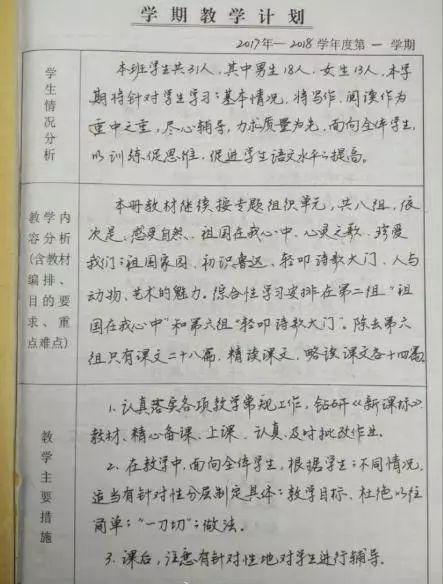 学期教学计划
2017年—2018学年度第一学期
学生情况分析
本班学生共31人，其中男生18人，女生13人，本学
期将针对学生学习的基本情况，将写作、阅读作为
重中之重，尽心辅导，力求质量为先，面向全体学生，
以训练促思维，促进学生语文水平的提高。
教学内
容分析
(含教材
编排、
目的要
求、重
点难点)
本册教材继续按专题组织单元，共八组，依
次是，感受自然、祖国在我心中、心灵之歌、珍爱
我们的祖国家园、初识鲁迅、轻叩诗歌大门、人与
动物、艺术的魅力。综合性学习安排在第二组“祖
国在我心中”和第六组“轻叩诗歌大门”。除去第六
组只有课文二十八篇，精读课文、略读课文各十四篇。
教学主要措施
1. 认真落实各项教学常规工作，钻研《新课标》、
教材、精心备课、上课、认真及时批改作业。
2. 在教学中，面向全体学生，根据学生的不同情况，
适当有针对性分层制定具体的教学目标、杜绝以往
简单的“一刀切”的做法。
3. 课后，注意有针对性地对学生进行辅导。